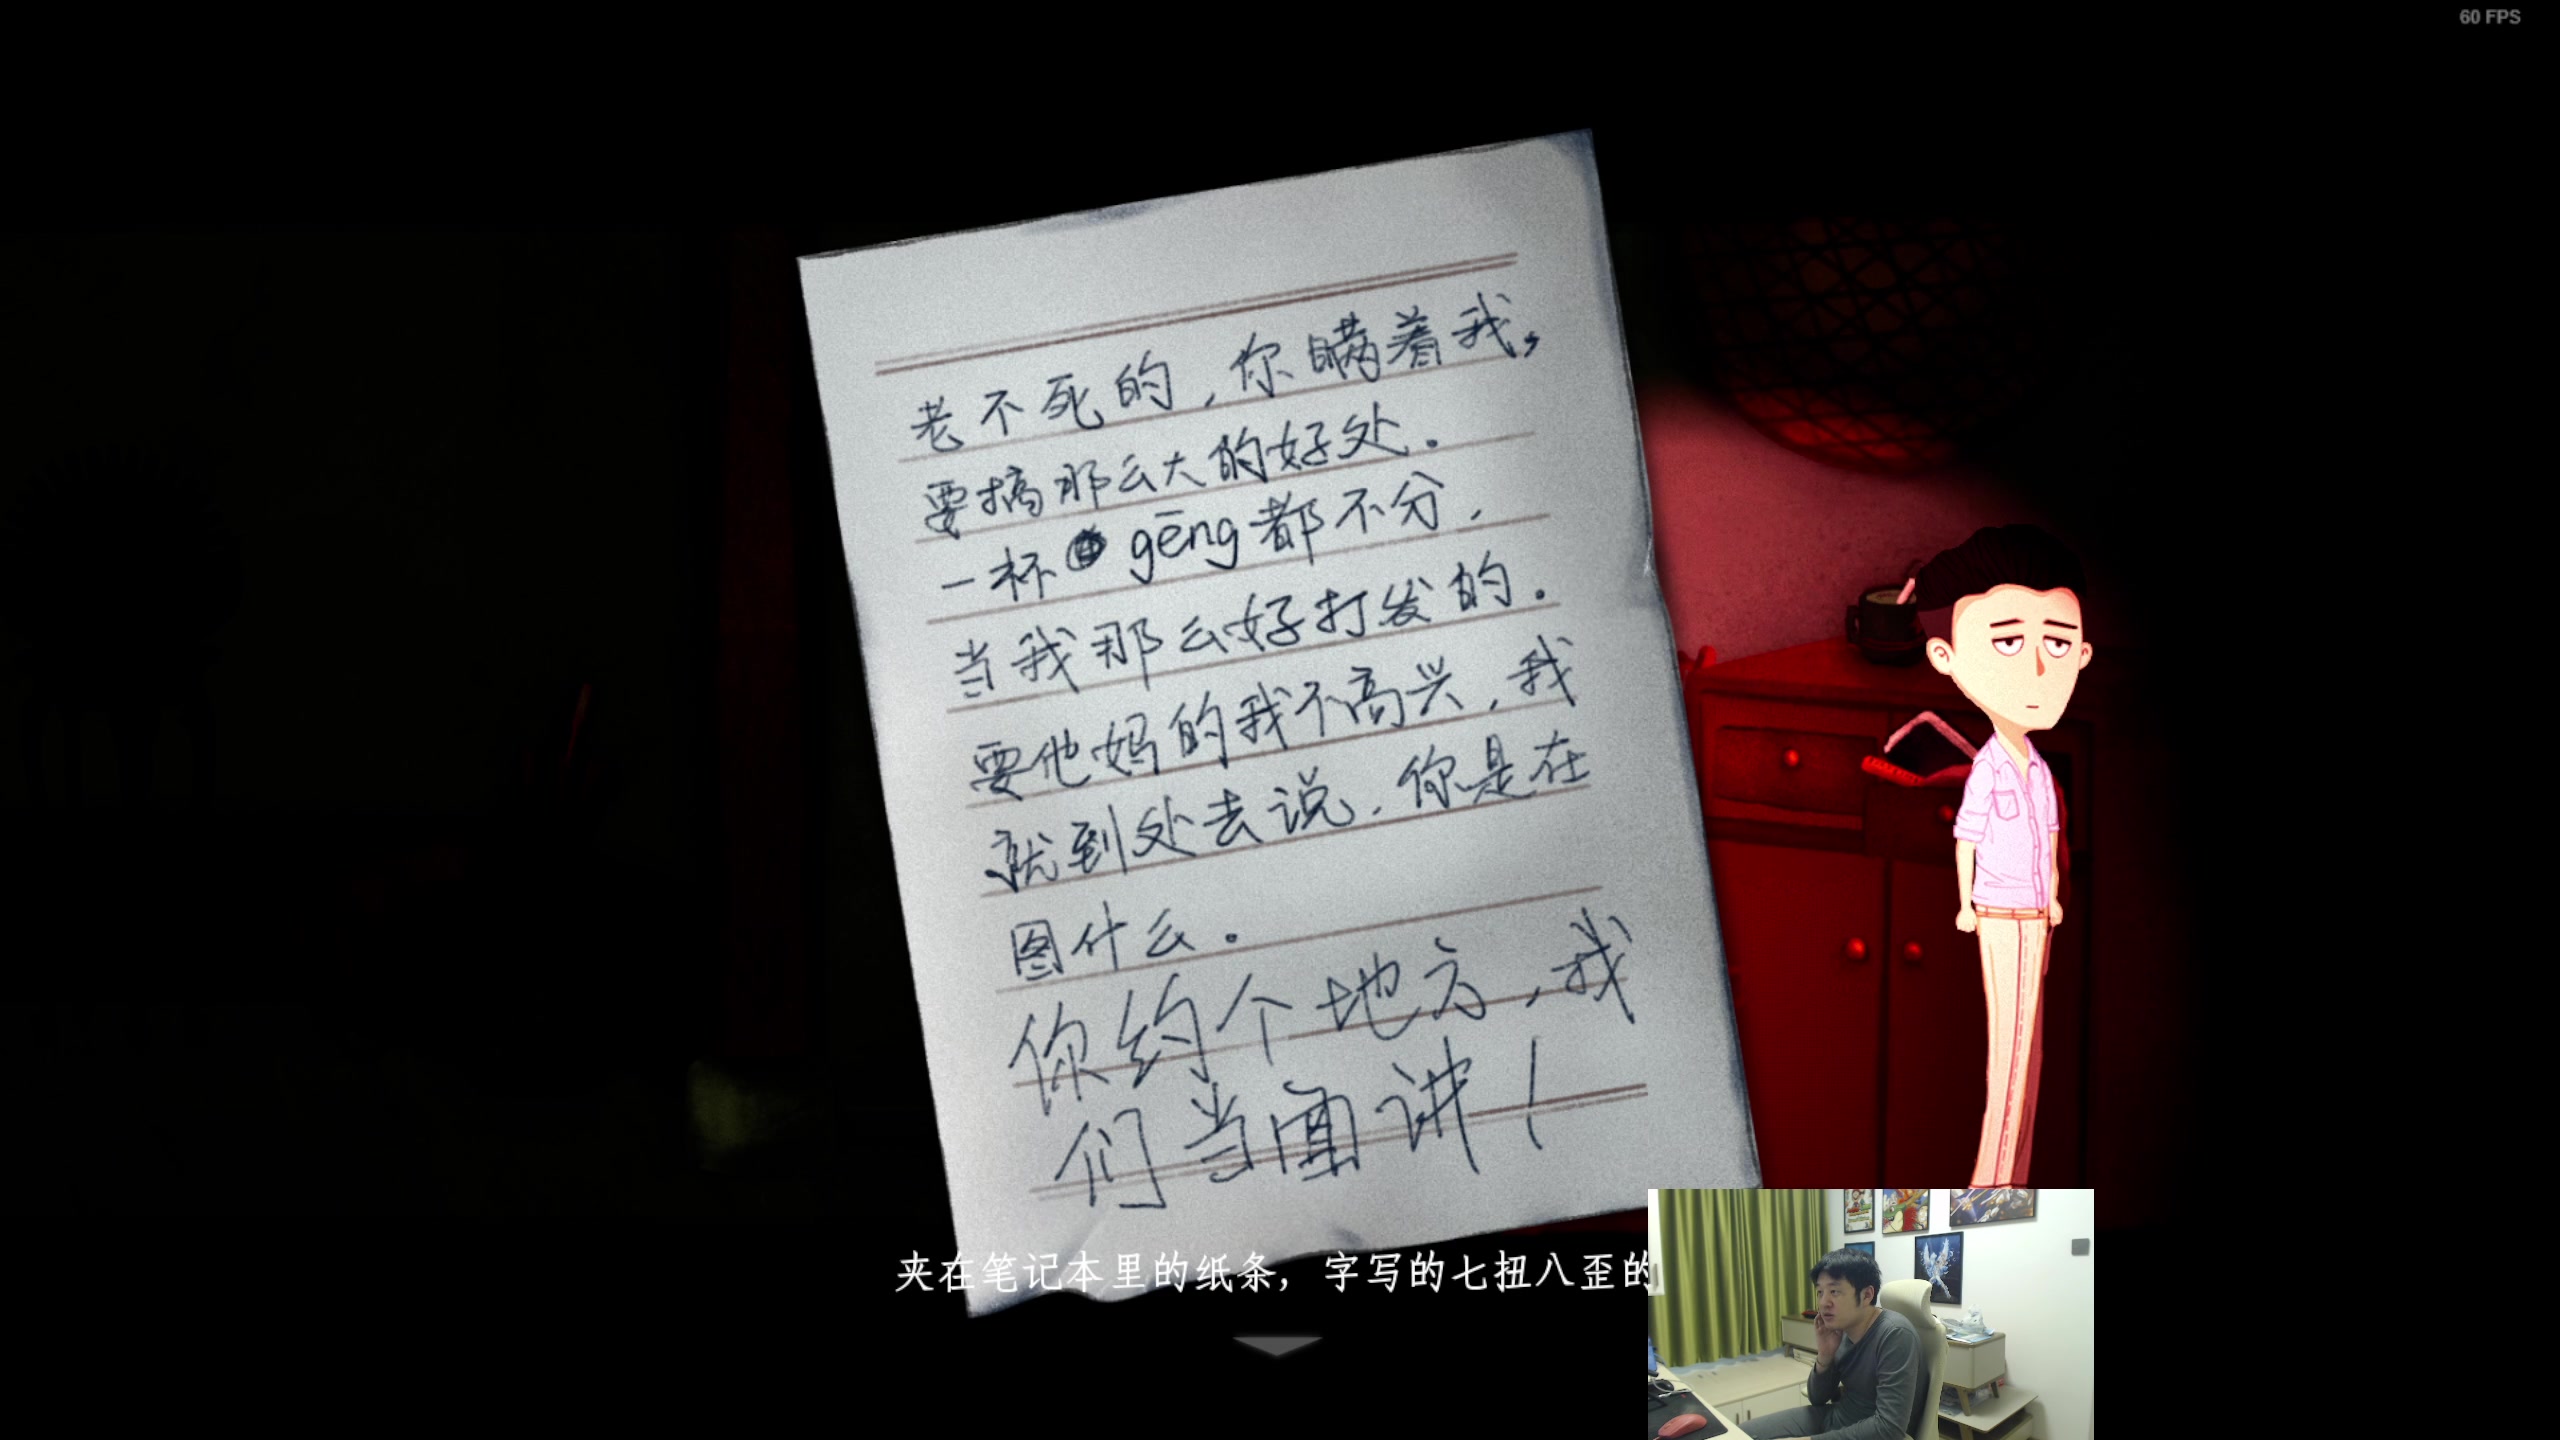 60 FPS
老不死的，你瞒着我，
要搞那么大的好处。
一杯 gēng都不分，
当我那么好打发的。
要他妈的我不高兴，我
就到处去说，你是在
图什么。
你约个地方，我
们当面讲！
夹在笔记本里的纸条，字写的七扭八歪的